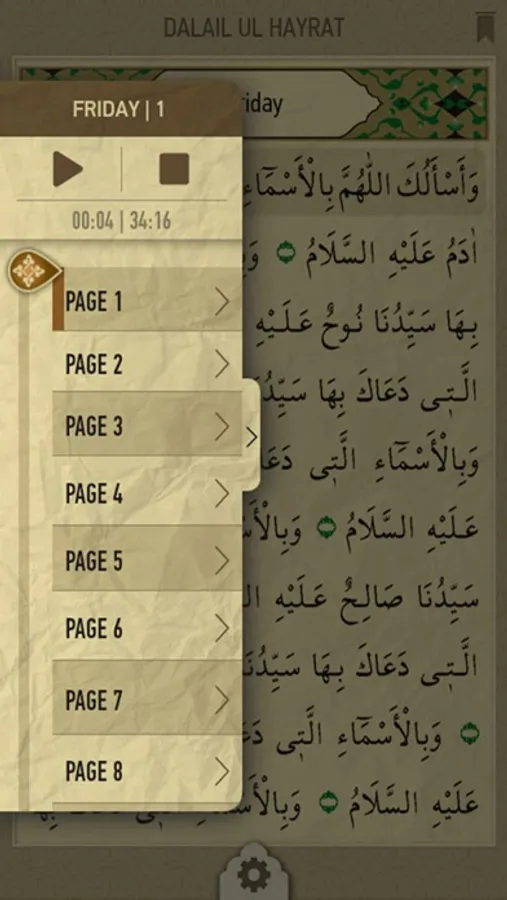 DALAIL UL HAYRAT
riday
FRIDAY | 1
00:04 | 34:16
PAGE 1
PAGE 2
PAGE 3
PAGE 4
PAGE 5
PAGE 6
PAGE 7
PAGE 8
وَأَسْأَلُكَ اللّٰهُمَّ بِالْأَسْمَٓاءِ
اٰدَمُ عَلَيْهِ السَّلَامُ
بِهَا سَيِّدُنَا نُوحٌ عَلَيْهِ
الَّتِي دَعَاكَ بِهَا سَيِّدُ
وَبِالْأَسْمَٓاءِ الَّتِي دَعَا
عَلَيْهِ السَّلَامُ وَبِالْأَسْ
سَيِّدُنَا صَالِحٌ عَلَيْهِ
الَّتِي دَعَاكَ بِهَا سَيِّدُنَا
وَبِالْأَسْمَٓاءِ الَّتِي دَعَا
عَلَيْهِ السَّلَامُ